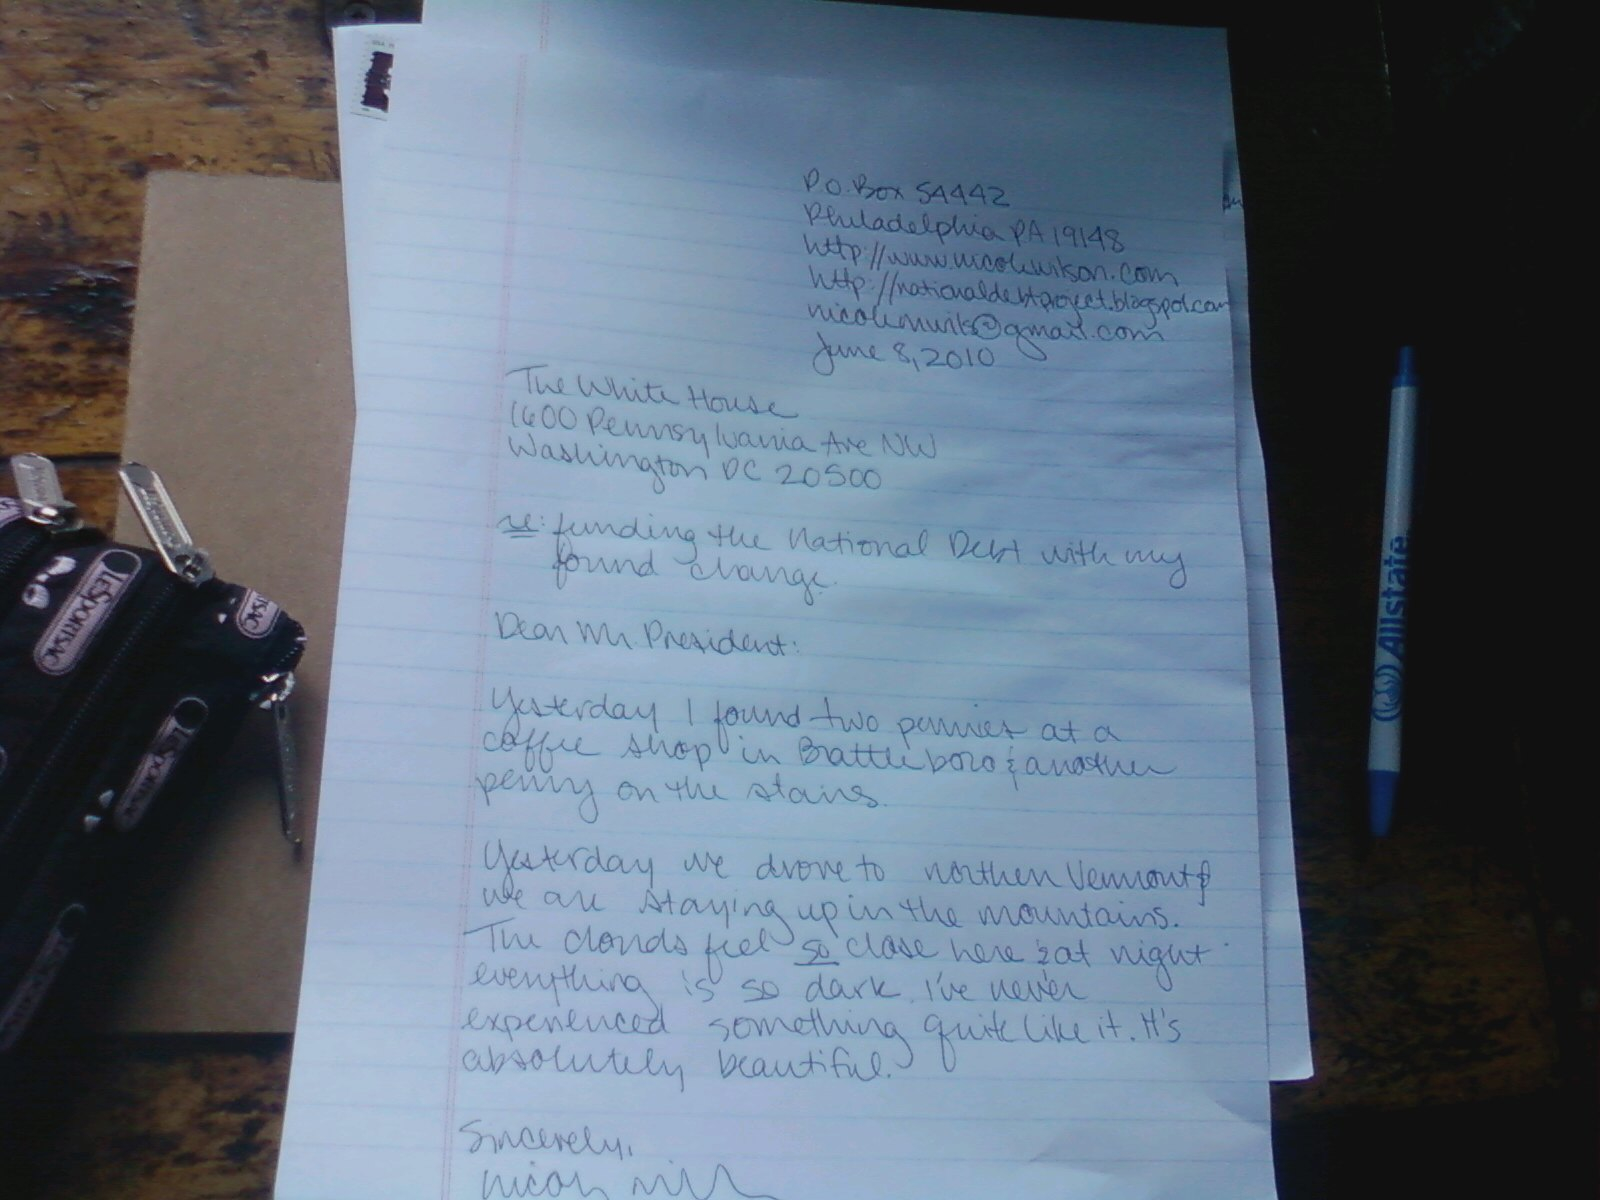 P.O. Box 54442
Philadelphia PA 19148
http://www.nicolewilson.com
http://nationaldebtproject.blogspot.com
@gmail.com
June 8, 2010
The White House
1600 Pennsylvania Ave NW
Washington DC 20500
re: funding the National Debt with my
found change.
Dear Mr President:
Yesterday I found two pennies at a
coffee shop in Brattleboro & another
penny on the stairs.
Yesterday we drove to northern Vermont &
we are staying up in the mountains.
The clouds feel so close here & at night
everything is so dark. I've never
experienced something quite like it. It's
absolutely beautiful.
Sincerely,
LESPORTSAC
LESPORTSAC
Allstate